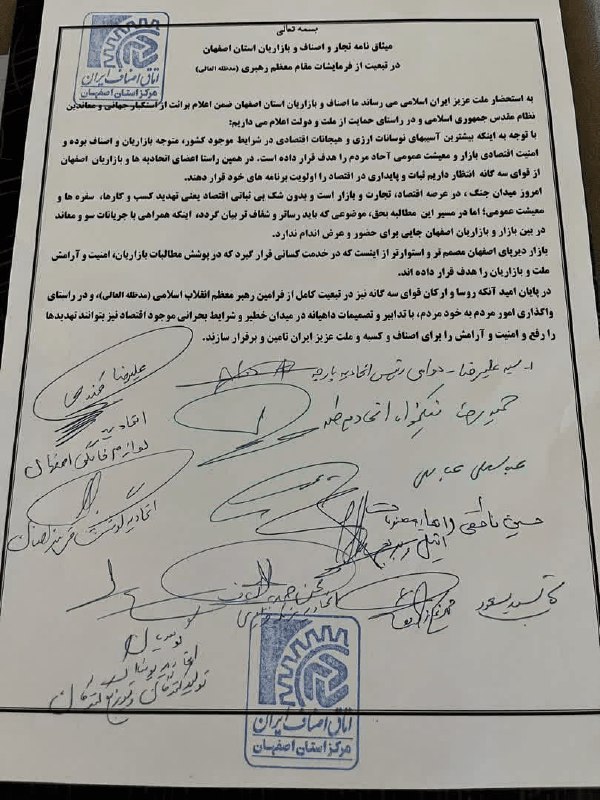 بسمه تعالی
میثاق نامه تجار و اصناف و بازاریان استان اصفهان
در تبعیت از فرمایشات مقام معظم رهبری (مدظله العالی)
اتاق اصناف ایران
مرکز استان اصفهان
به استحضار ملت عزیز ایران اسلامی می رساند ما اصناف و بازاریان استان اصفهان ضمن اعلام برائت از استکبار جهانی و معاندین
نظام مقدس جمهوری اسلامی و در راستای حمایت از ملت و دولت اعلام می داریم:
با توجه به اینکه بیشترین آسیبهای نوسانات ارزی و هیجانات اقتصادی در شرایط موجود کشور، متوجه بازاریان و اصناف بوده و
امنیت اقتصادی بازار و معیشت عمومی آحاد مردم را هدف قرار داده است. در همین راستا اعضای اتحادیه ها و بازاریان اصفهان
از قوای سه گانه انتظار داریم ثبات و پایداری در اقتصاد را اولویت برنامه های خود قرار دهند.
امروز میدان جنگ، در عرصه اقتصاد، تجارت و بازار است و بدون شک بی ثباتی اقتصاد یعنی تهدید کسب و کارها، سفره ها و
معیشت عمومی؛ اما در مسیر این مطالبه بحق، موضوعی که باید رساتر و شفاف تر بیان گردد، اینکه همراهی با جریانات سو و معاند
در بین بازار و بازاریان اصفهان جایی برای حضور و عرض اندام ندارد.
بازار دیرپای اصفهان مصمم تر و استوارتر از اینست که در خدمت کسانی قرار گیرد که در پوشش مطالبات بازاریان، امنیت و آرامش
ملت و بازاریان را هدف قرار داده اند.
در پایان امید آنکه روسا و ارکان قوای سه گانه نیز در تبعیت کامل از فرامین رهبر معظم انقلاب اسلامی (مدظله العالی)، و در راستای
واگذاری امور مردم به خود مردم، با تدابیر و تصمیمات داهیانه در میدان خطیر و شرایط بحرانی موجود اقتصاد نیز بتوانند تهدیدها
را رفع و امنیت و آرامش را برای اصناف و کسبه و ملت عزیز ایران تامین و برقرار سازند.
سید علیرضا رئیس اتحادیه پارچه
علیرضا
اتحادیه
لوازم خانگی اصفهان
اتحادیه گوشت
عباسعلی عباسی
حسین
سید مسعود
اتاق اصناف ایران
مرکز استان اصفهان